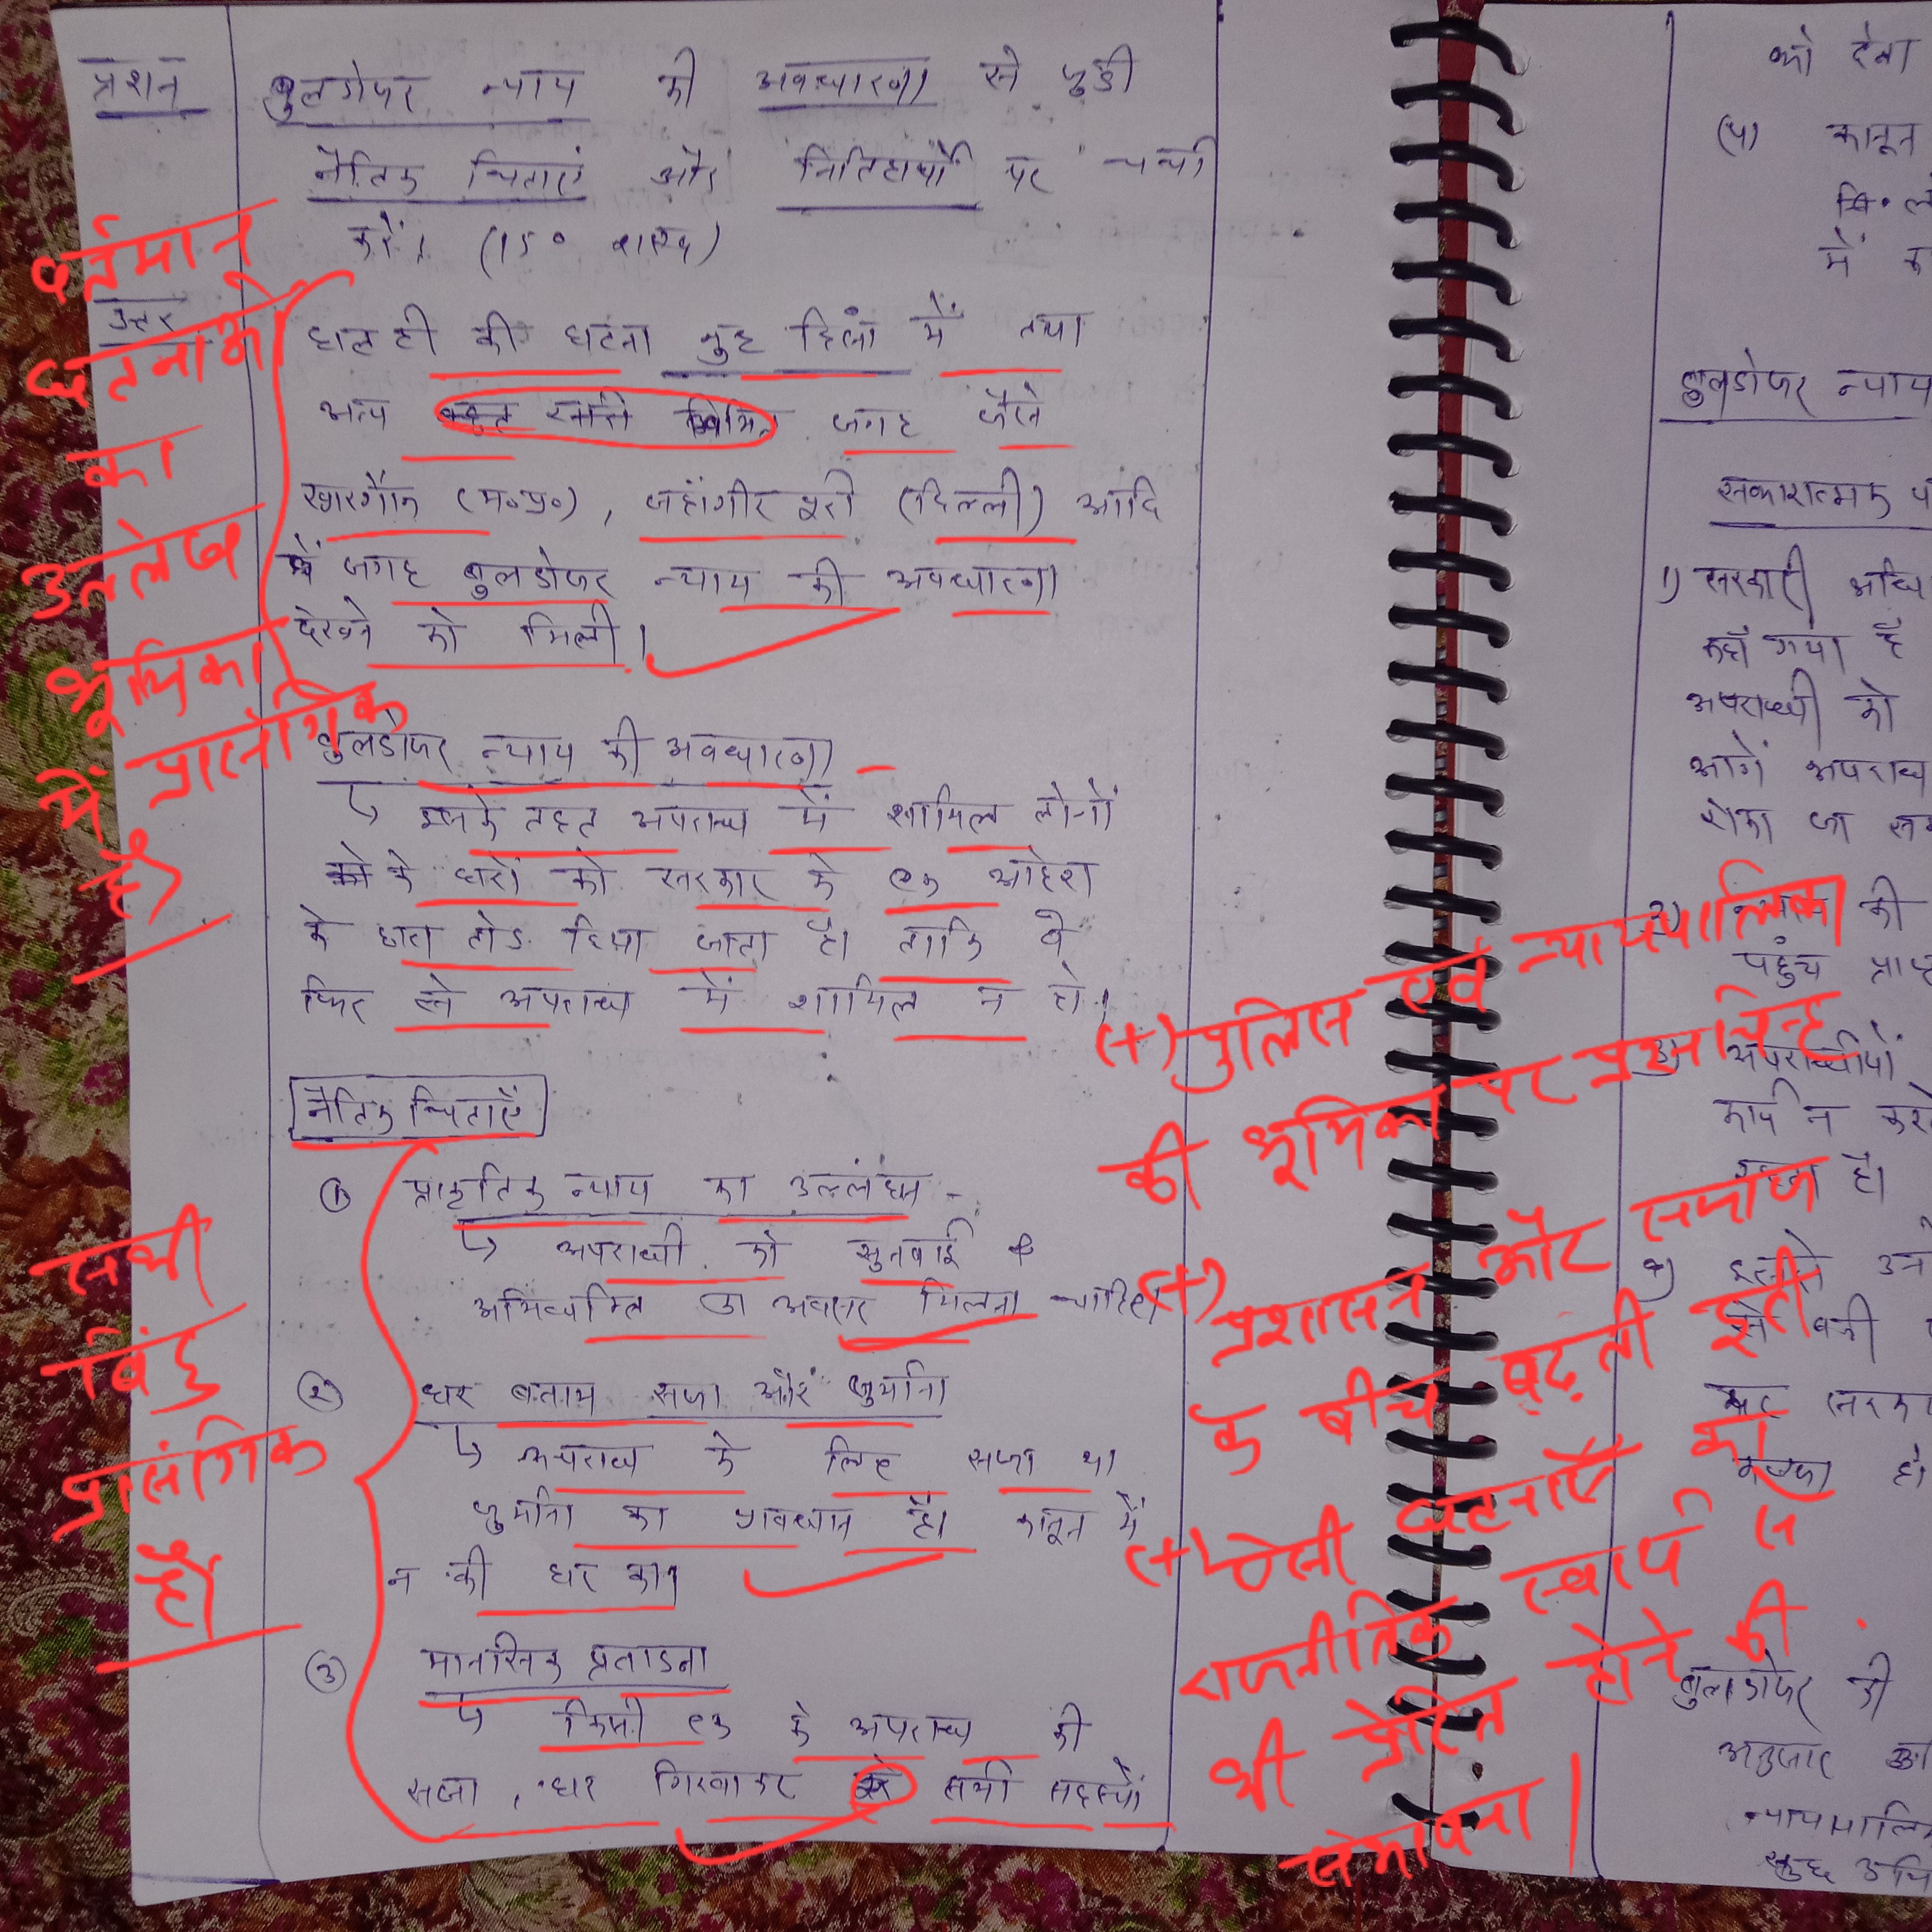 प्रशन बुलडोजर न्याय की अवधारणा से जुडी
नैतिक चिंताएं और निहितार्थों पर चर्चा
करें। (150 शब्द)
उत्तर
हाल ही की घटना नुह हिंसा में तथा
अन्य जगह जैसे
खारगौन (म०प्र०), जहांगीर पुरी (दिल्ली) आदि
जगह बुलडोजर न्याय की अवधारणा
देखने को मिली।
बुलडोजर न्याय की अवधारणा
↳ इसके तहत अपराध में शामिल लोगों
के घरों को सरकार के एक आदेश
के द्वारा तोड दिया जाता है। ताकि वे
फिर से अपराध में शामिल न हो।
नैतिक चिंताएँ
① प्राकृतिक न्याय का उल्लंघन -
↳ अपराधी को सुनवाई
अभिव्यक्ति का अवसर मिलना चाहिए।
② घर बनाम सजा और जुर्माना
↳ अपराध के लिए सजा या
जुर्माना का प्रावधान है। कानून में
न की घर का।
③ मानसिक प्रताडना
↳ किसी एक के अपराध की
सजा, घर गिरवाकर सभी सदस्यों
वर्तमान
घटनाओं
का
उल्लेख
भूमिका
में प्रासंगिक
है)
सभी
बिंदु
प्रासंगिक
हैं
(+) पुलिस एवं न्यायपालिका
की भूमिका पर प्रश्नचिन्ह
(+) प्रशासन और समाज
के बीच बढ़ती दूरी
(+) ऐसी घटनाएँ का
राजनीतिक स्वार्थ से
भी प्रेरित होने की
संभावना।
को देना
(५) कानून
में
बुलडोजर न्याय
सकारात्मक
1) सरकारी
कहाँ गया है
अपराधी को
आगे अपराध
रोका जा
की
पहुंच
3) अपराधीयों
कार्य न
है।
४) इससे
सरका
बुलडोजर की
अनुसार
न्यायपालि